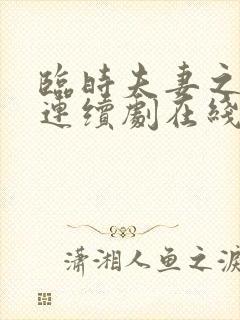 臨時夫妻之
連續劇在綫
瀟湘人鱼之淚